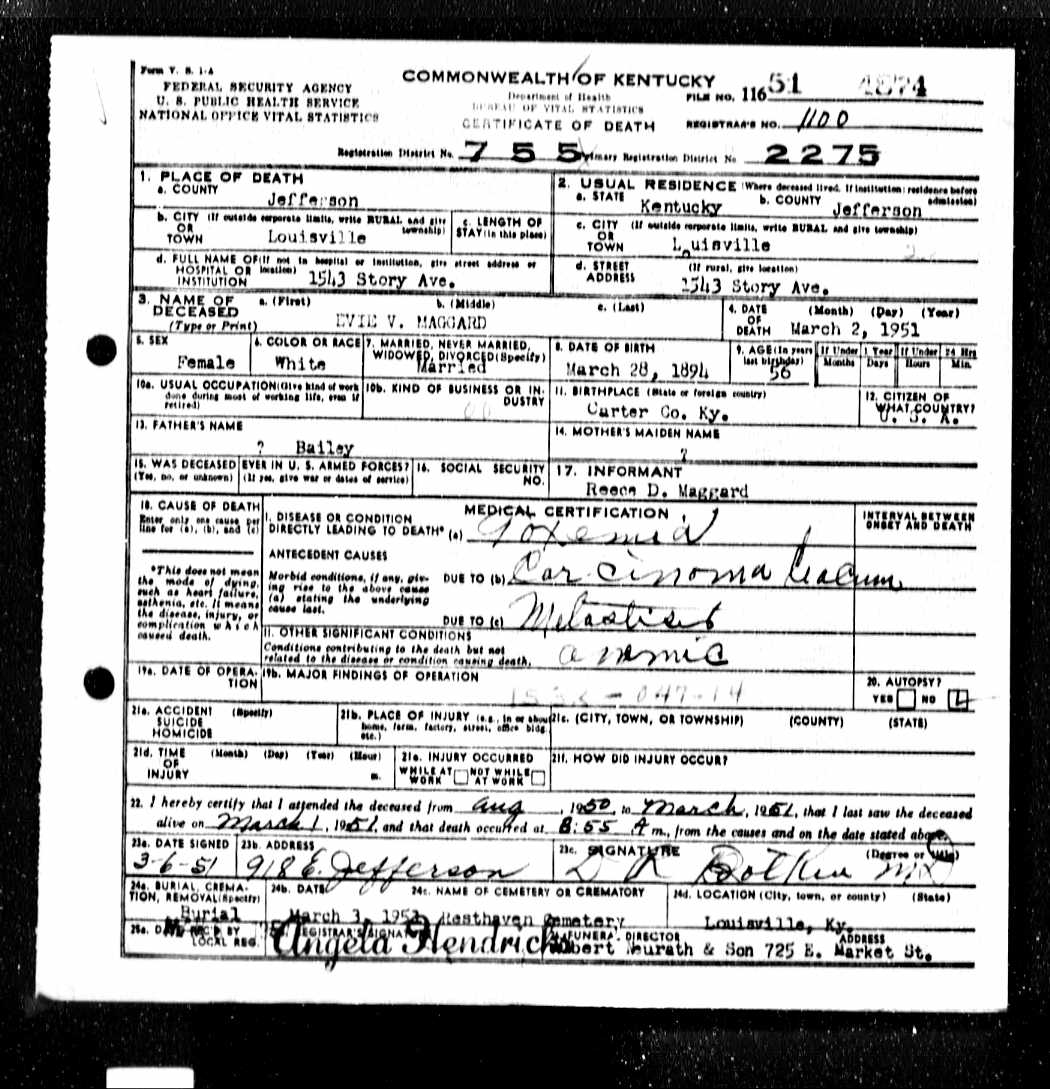 Form V. S. 1-A
FEDERAL SECURITY AGENCY
U. S. PUBLIC HEALTH SERVICE
NATIONAL OFFICE VITAL STATISTICS
COMMONWEALTH OF KENTUCKY
Department of Health
BUREAU OF VITAL STATISTICS
CERTIFICATE OF DEATH
FILE NO. 116 51 4874
REGISTRAR'S NO. 1100
Registration District No. 755 Primary Registration District No 2275
1. PLACE OF DEATH
a. COUNTY
Jefferson
2. USUAL RESIDENCE (Where deceased lived. If institution: residence before admission)
a. STATE Kentucky b. COUNTY Jefferson
b. CITY (If outside corporate limits, write RURAL and give township)
OR
TOWN Louisville
c. LENGTH OF STAY (in this place)
c. CITY (If outside corporate limits, write RURAL and give township)
OR
TOWN Louisville
d. FULL NAME OF (If not in hospital or institution, give street address or location)
HOSPITAL OR
INSTITUTION 1543 Story Ave.
d. STREET ADDRESS (If rural, give location)
1543 Story Ave.
3. NAME OF DECEASED
(Type or Print)
a. (First) b. (Middle) c. (Last)
EVIE V. MAGGARD
4. DATE OF DEATH (Month) (Day) (Year)
March 2, 1951
5. SEX
Female
6. COLOR OR RACE
White
7. MARRIED, NEVER MARRIED, WIDOWED, DIVORCED (Specify)
Married
8. DATE OF BIRTH
March 28, 1894
9. AGE (In years last birthday)
56
If Under 1 Year
Months Days
If Under 24 Hrs
Hours Min.
10a. USUAL OCCUPATION (Give kind of work done during most of working life, even if retired)
10b. KIND OF BUSINESS OR INDUSTRY
11. BIRTHPLACE (State or foreign country)
Carter Co. Ky.
12. CITIZEN OF WHAT COUNTRY?
U. S. A.
13. FATHER'S NAME
? Bailey
14. MOTHER'S MAIDEN NAME
?
15. WAS DECEASED EVER IN U. S. ARMED FORCES?
(Yes, no, or unknown) (If yes, give war or dates of service)
16. SOCIAL SECURITY NO.
17. INFORMANT
Reece D. Maggard
18. CAUSE OF DEATH
Enter only one cause per line for (a), (b), and (c)
*This does not mean the mode of dying, such as heart failure, asthenia, etc. It means the disease, injury, or complication which caused death.
MEDICAL CERTIFICATION
INTERVAL BETWEEN ONSET AND DEATH
I. DISEASE OR CONDITION DIRECTLY LEADING TO DEATH* (a) Toxemia
ANTECEDENT CAUSES
Morbid conditions, if any, giving rise to the above cause (a) stating the underlying cause last.
DUE TO (b) Carcinoma
DUE TO (c)
II. OTHER SIGNIFICANT CONDITIONS
Conditions contributing to the death but not related to the disease or condition causing death.
19a. DATE OF OPERATION
19b. MAJOR FINDINGS OF OPERATION
20. AUTOPSY?
YES NO
21a. ACCIDENT SUICIDE HOMICIDE (Specify)
21b. PLACE OF INJURY (e.g., in or about home, farm, factory, street, office bldg. etc.)
21c. (CITY, TOWN, OR TOWNSHIP) (COUNTY) (STATE)
21d. TIME OF INJURY (Month) (Day) (Year) (Hour) m.
21e. INJURY OCCURRED
WHILE AT WORK NOT WHILE AT WORK
21f. HOW DID INJURY OCCUR?
22. I hereby certify that I attended the deceased from Aug, 1950, to March, 1951, that I last saw the deceased
alive on March 1, 1951, and that death occurred at 8:55 A m., from the causes and on the date stated above.
23a. DATE SIGNED
3-6-51
23b. ADDRESS
918 E. Jefferson
23c. SIGNATURE (Degree or title)
MD
24a. BURIAL, CREMATION, REMOVAL (Specify)
Burial
24b. DATE
March 3, 1951
24c. NAME OF CEMETERY OR CREMATORY
Resthaven Cemetery
24d. LOCATION (City, town, or county) (State)
Louisville, Ky.
25a. DATE REC'D BY LOCAL REG.
REGISTRAR'S SIGNATURE
Angela Hendricks
FUNERAL DIRECTOR ADDRESS
Neurath & Son 725 E. Market St.